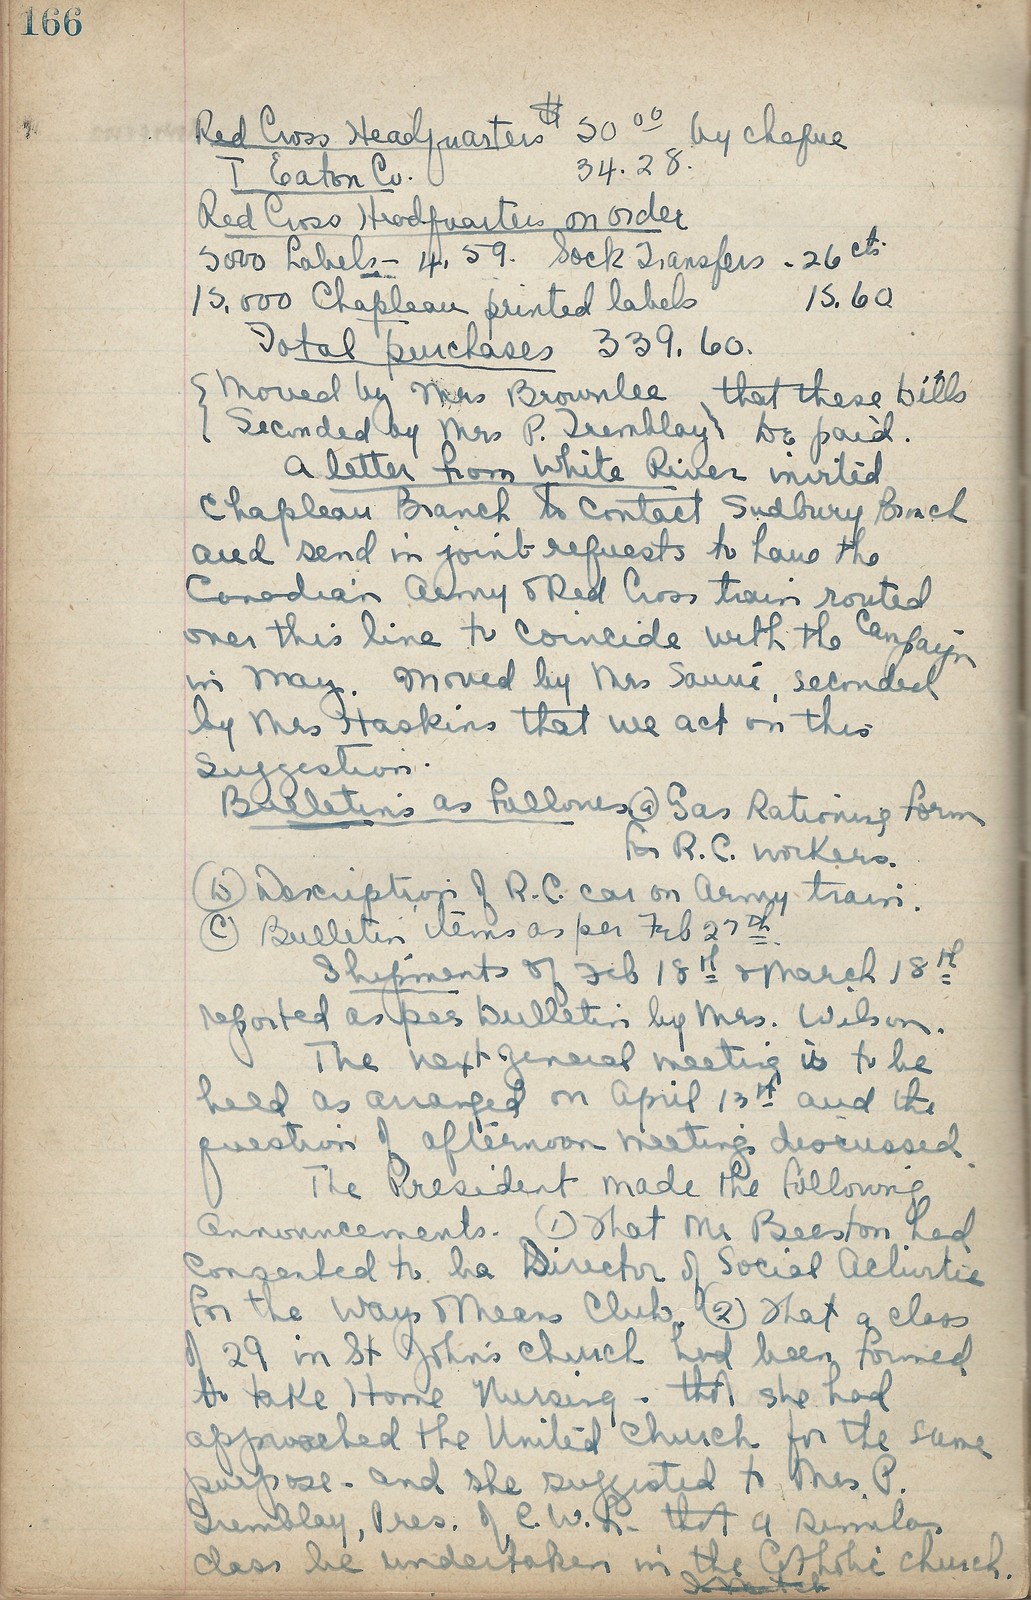 166
Red Cross Headquarters $ 50 00 by cheque
T Eaton Co. 34.28.
Red Cross Headquarters on order
5000 Labels - 4.59. Sock Transfers - 26 cts.
15,000 Chapleau printed labels 15.60
Total purchases 339.60.
{ Moved by Mrs Brownlee } that these bills
{ Seconded by Mrs P. Tremblay } be paid.
A letter from White River invited
Chapleau Branch to contact Sudbury Branch
and send in joint requests to have the
Canadian Army & Red Cross train routed
over this line to coincide with the Campaign
in May. Moved by Mrs Sauvé, seconded
by Mrs Haskins that we act on this
suggestion.
Bulletins as follows (a) Gas Rationing form
for R.C. workers.
(b) Description of R.C. car on Army train.
(c) Bulletin items as per Feb 27th.
Shipments of Feb 18th & March 18th
reported as per bulletin by Mrs. Wilson.
The next general meeting is to be
held as arranged on April 13th and the
question of afternoon meetings discussed.
The President made the following
announcements. (1) That Mr Beeston had
consented to be Director of Social Activitie
for the Ways & Means Club. (2) That a class
of 29 in St John's church had been formed
to take Home Nursing - that she had
approached the United Church for the same
purpose - and she suggested to Mrs. P.
Tremblay, Pres. of C.W.L. that a similar
class be undertaken in the Catholic church.